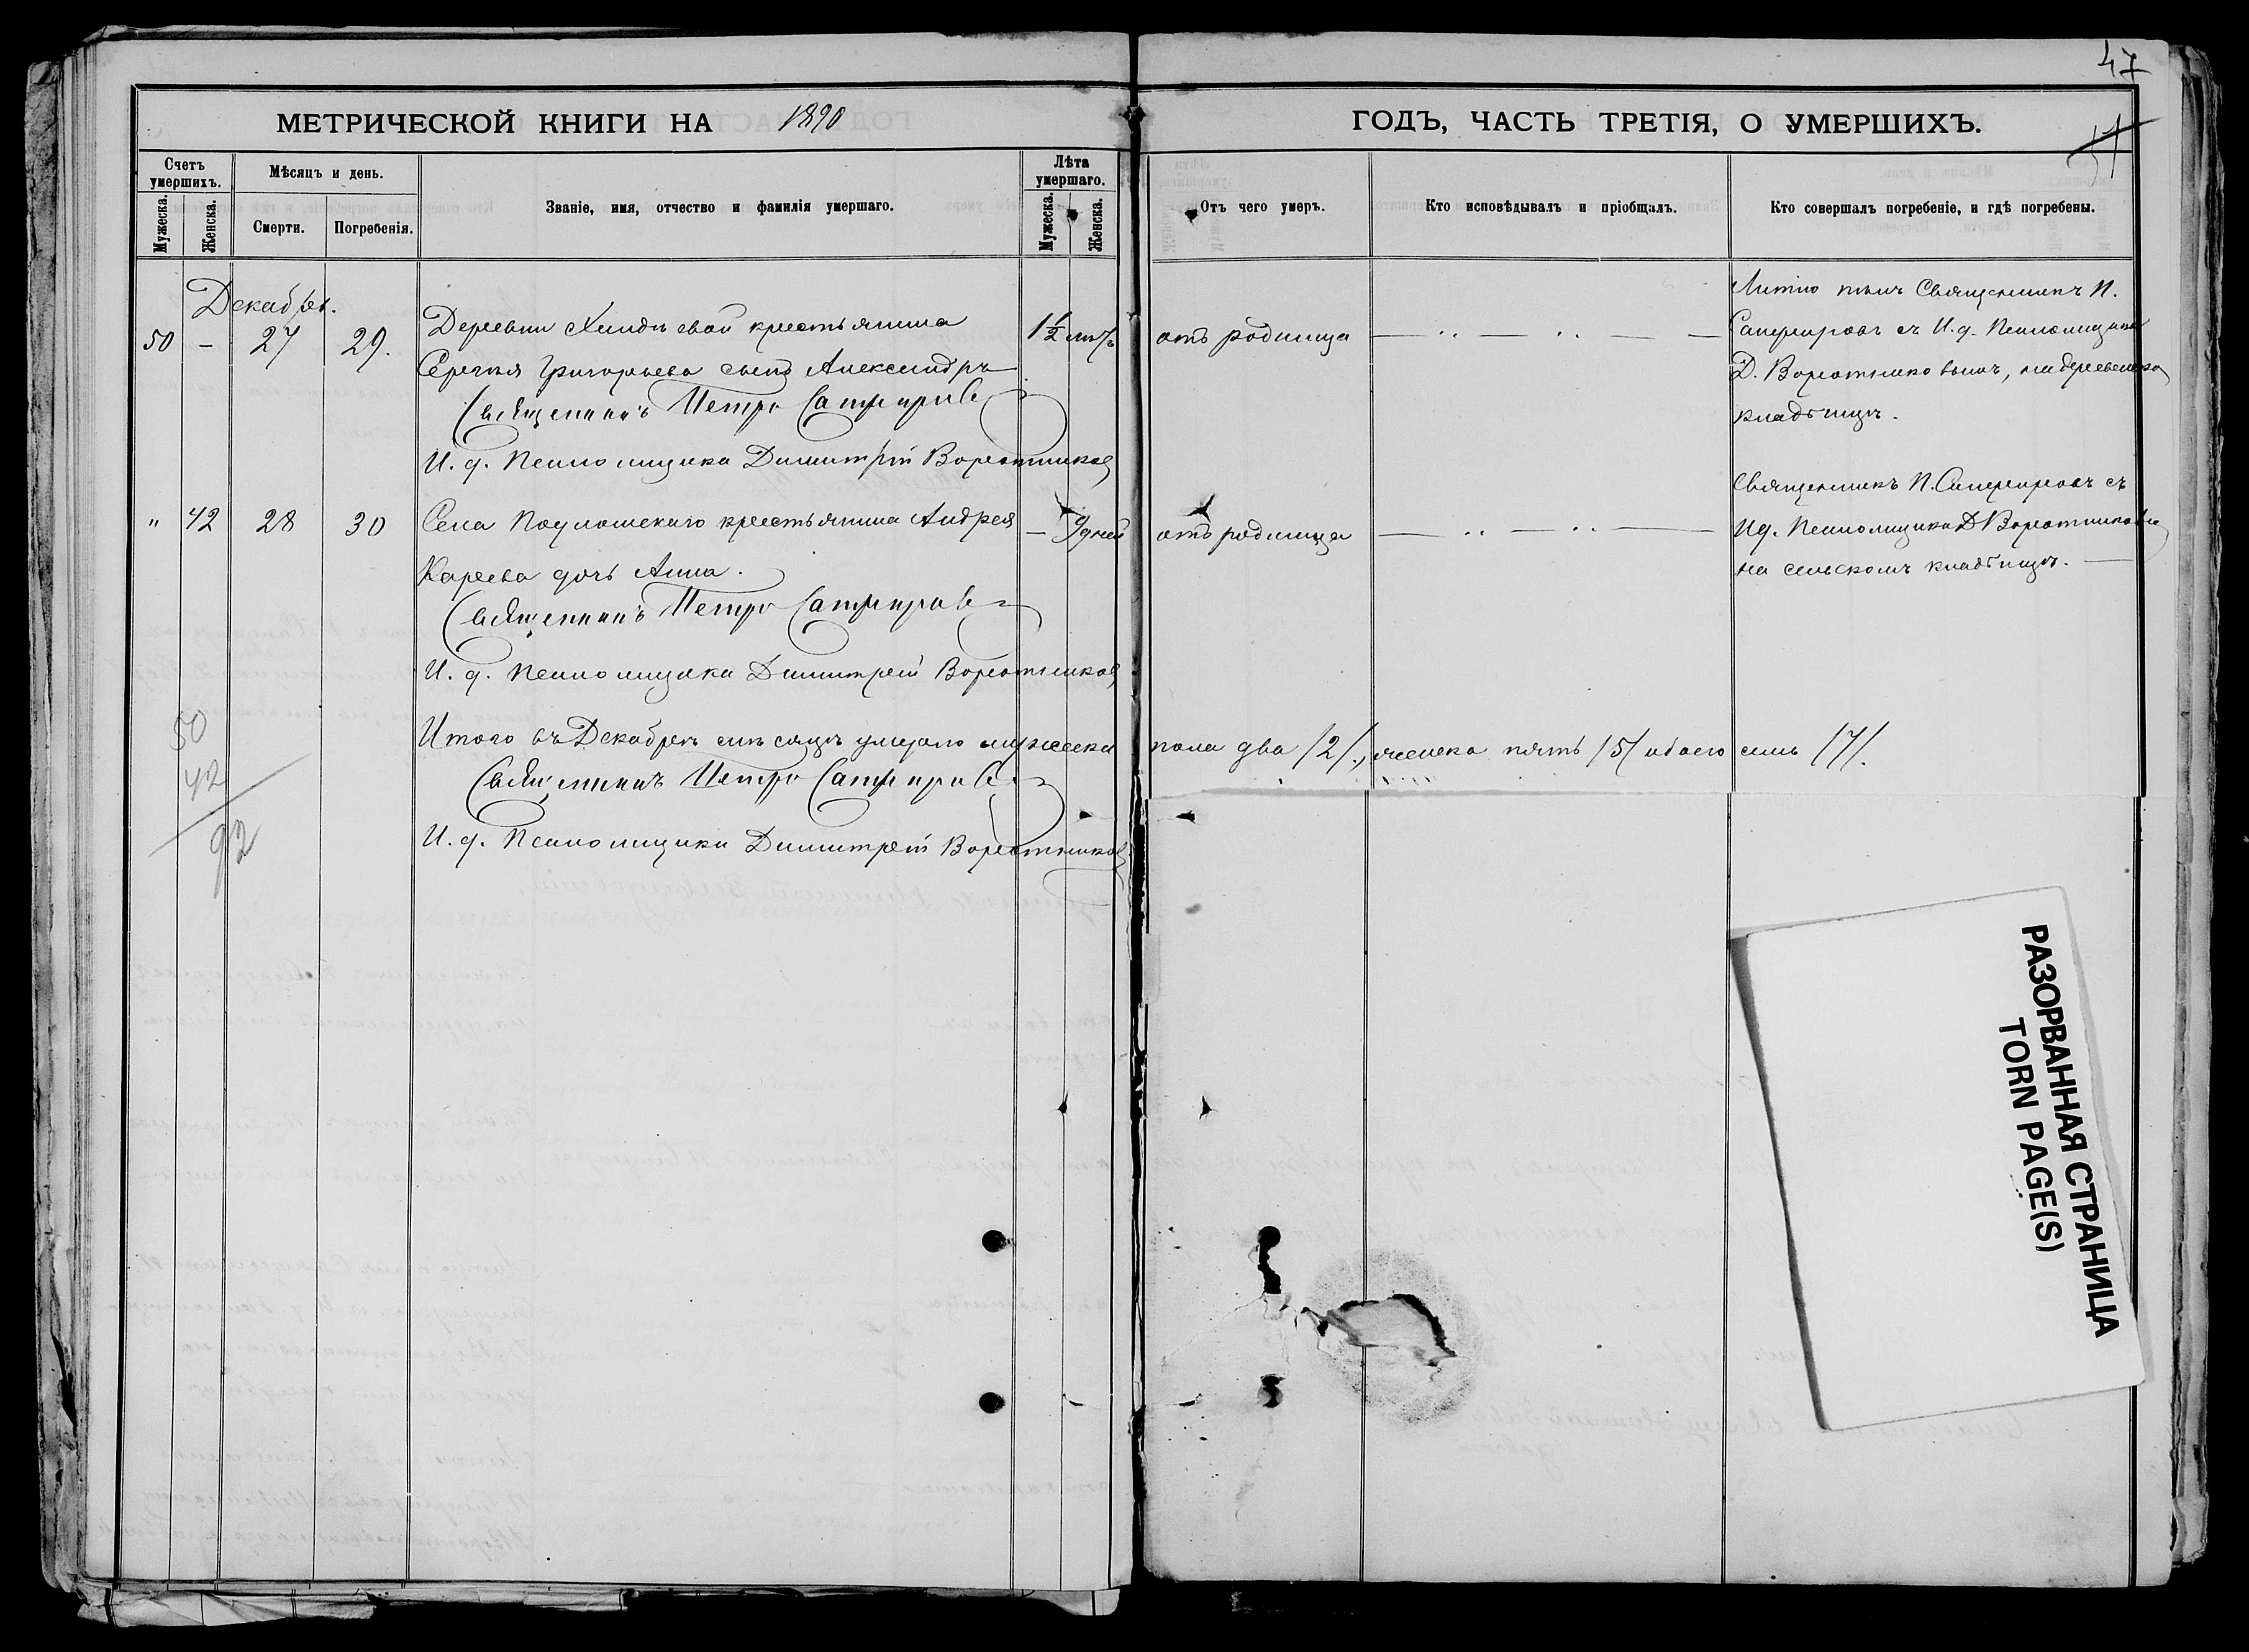 47
МЕТРИЧЕСКОЙ КНИГИ НА 1890
ГОДЪ, ЧАСТЬ ТРЕТІЯ, О УМЕРШИХЪ.
51
Счетъ умершихъ.
Мѣсяцъ и день.
Званіе, имя, отчество и фамилія умершаго.
Лѣта умершаго.
Отъ чего умеръ.
Кто исповѣдывалъ и пріобщалъ.
Кто совершалъ погребеніе, и гдѣ погребены.
Мужеска.
Женска.
Смерти.
Погребенія.
Мужеска.
Женска.
Декабрь.
50 - 27 29.
Деревни крестьянина
Сергѣя Григорьева сынъ Александръ
Священникъ Петръ Сапфировъ
И. д. Псаломщика Димитрій Воротниковъ
1½
отъ родимца
Литію пѣлъ Священникъ П.
Сапфировъ съ И. д. Псаломщика
Д. Воротниковымъ, на деревенск
кладбищѣ.
" 42 28 30
Села крестьянина Андрея
Карева дочь Анна.
Священникъ Петръ Сапфировъ
И. д. Псаломщика Димитрій Воротниковъ
— 9 дней
отъ родимца
Священникъ П. Сапфировъ съ
Ид. Псаломщика Д Воротниковы
на сельскомъ кладбищѣ.
Итого въ Декабрѣ мѣсяцѣ умерло мужеска пола два /2/, женска пять /5/ обоего семь /7/.
Священникъ Петръ Сапфировъ
И. д. Псаломщика Димитрій Воротниковъ
50
42
92
РАЗОРВАННАЯ СТРАНИЦА
TORN PAGE(S)